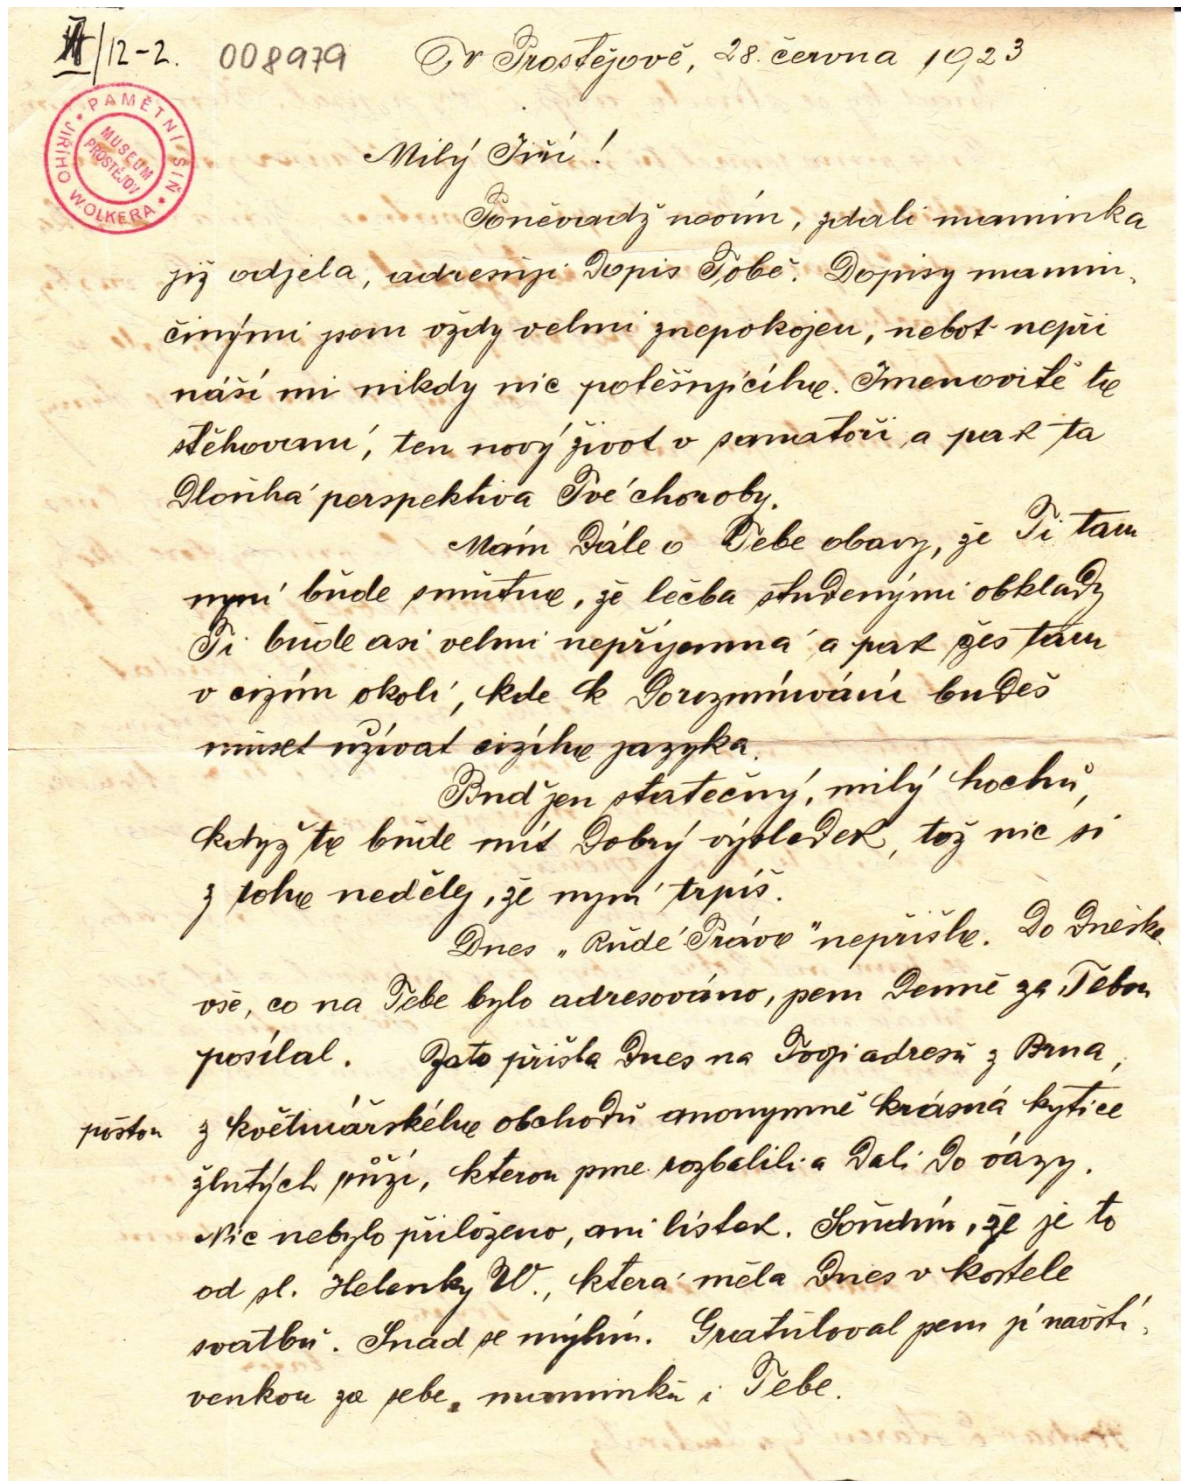 II/12-2. 008979 V Prostějově, 28. června 1923
PAMĚTNÍ SÍŇ • JIŘÍHO WOLKERA •
MUSEUM PROSTĚJOV
Milý Jiří!
Poněvadž nevím, zdali maminka
již odjela, adresuji Dopis Tobě. Dopisy mamin-
činými jsem vždy velmi znepokojen, neboť nepři
náší mi nikdy nic potěšujícího. Jmenovitě to
stěhovaní, ten nový život v sanatoři a pak ta
Dlouhá perspektiva Tvé choroby.
Mám Dále o Tebe obavy, že Ti tam
nyní bude smutno, že léčba studenými obklady
Ti bude asi velmi nepříjemná a pak žes tam
v cizím okolí, kde k Dorozumívání budeš
muset užívat cizího jazyka.
Buď jen statečný, milý hochu,
když to bude mít Dobrý výsledek, tož nic si
z toho nedělej, že nyní trpíš.
Dnes „Rudé Právo" nepřišlo. Do Dneška
vše, co na Tebe bylo adresováno, jsem Denně za Tebou
posílal. Zato přišla Dnes na Tvoji adresu z Brna,
poštou z květinářského obchodu anonymně krásná kytice
žlutých růží, kterou jsme rozbalili a Dali Do vázy.
Nic nebylo přiloženo, ani lístek. Soudím, že je to
od sl. Helenky W., která měla Dnes v kostele
svatbu. Snad se mýlím. Gratuloval jsem jí navští-
venkou za sebe, maminku i Tebe.